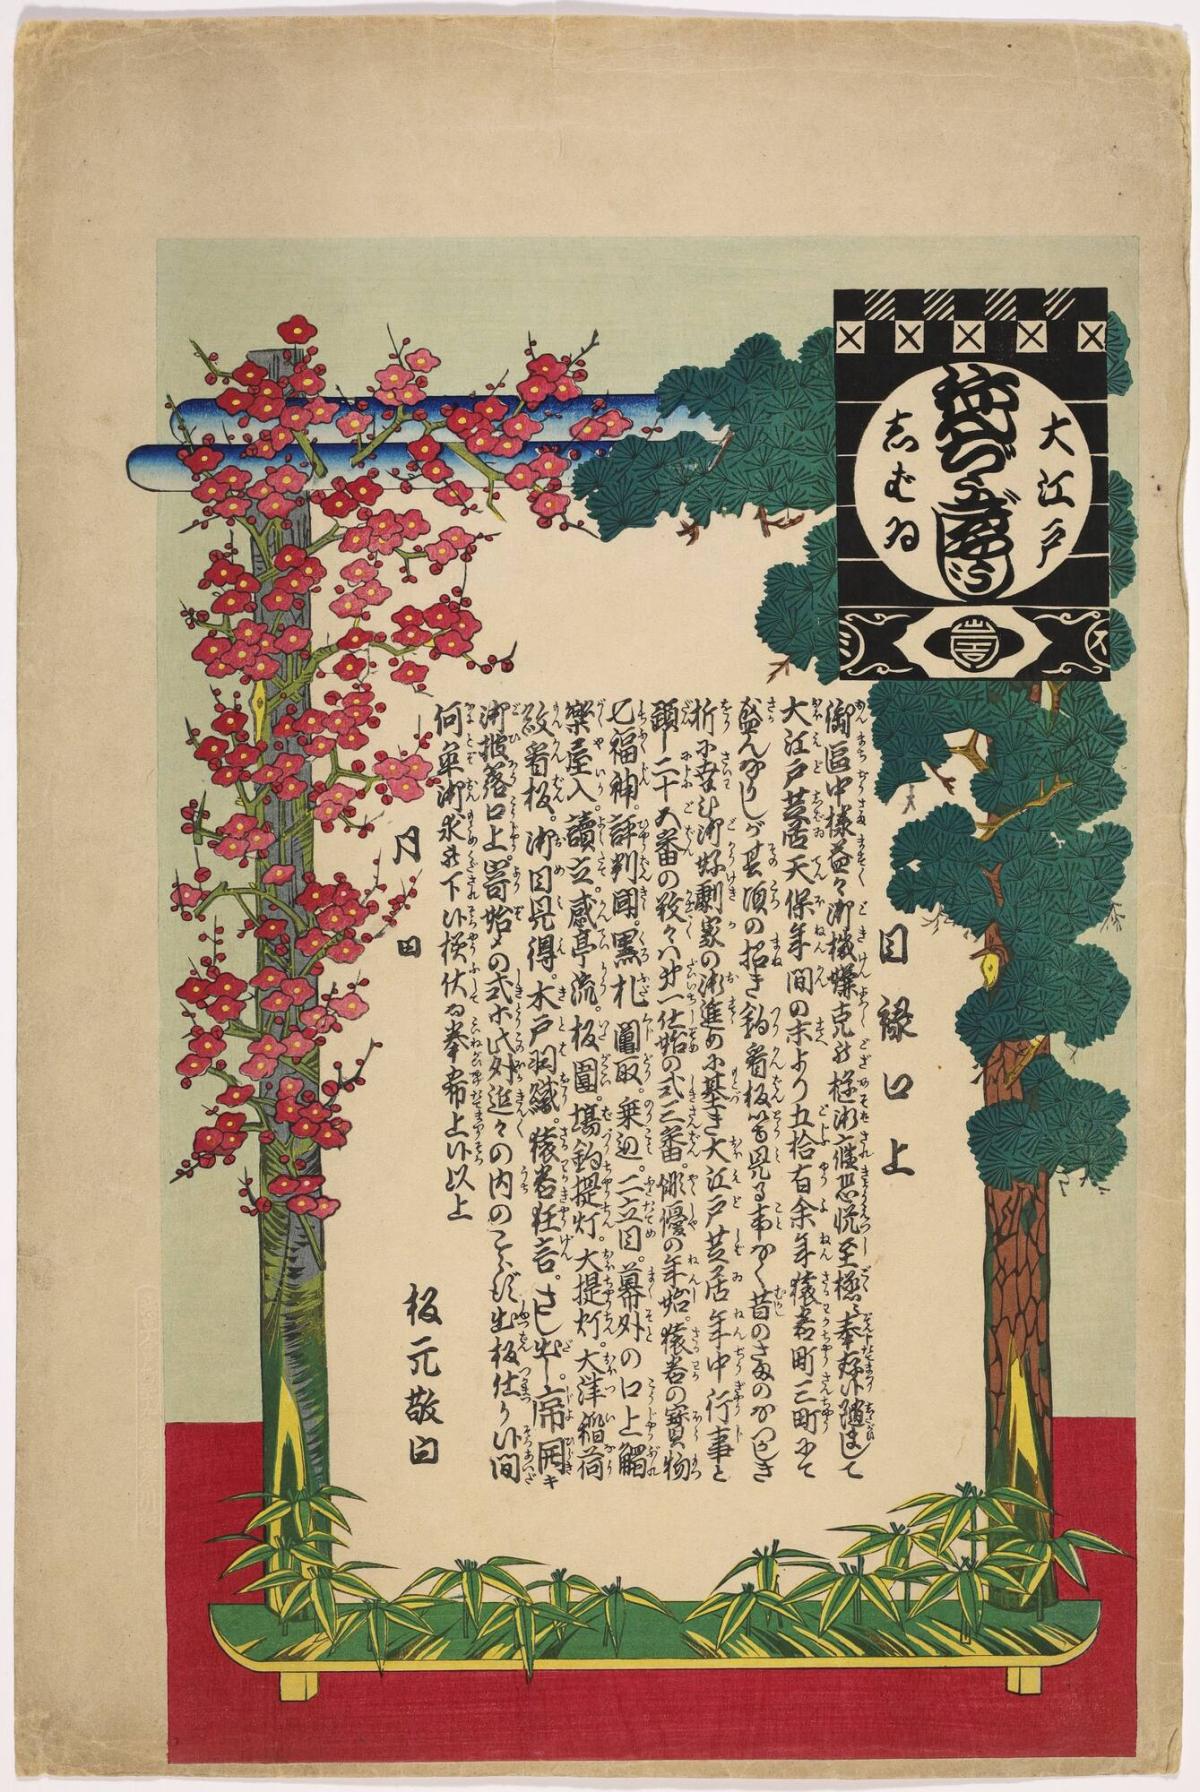 大江戸
志むゐ
目禄口上
御區中様益々御機嫌克被極御座恐悦至極ニ奉存候随まして
大江戸芝居天保年間の末より五拾有余年猿若町三町にて
盛んなりしが其頃の招き釣看板等見る事なく昔のさまのなつかしき
折に幸ひ御好劇家の御進めに基き大江戸芝居年中行事と
題し二十五番の数々ハ第一仕始の式三番。俳優の年始。猿若の寳物
七福神。評判鬮。黒札鬮取。乗込。二立目。幕外の口上觸
楽屋入。讀立。感亭流。板圍。場釣提灯。大提灯。大津稲荷
紋看板。御目見得。木戸羽織。猿若狂言。さし出し。席開キ
御披落口上。寄始メの式等此外追々の内のこらず出板仕り候間
何卒御求被下候様伏而奉希上候以上
月日
板元敬白